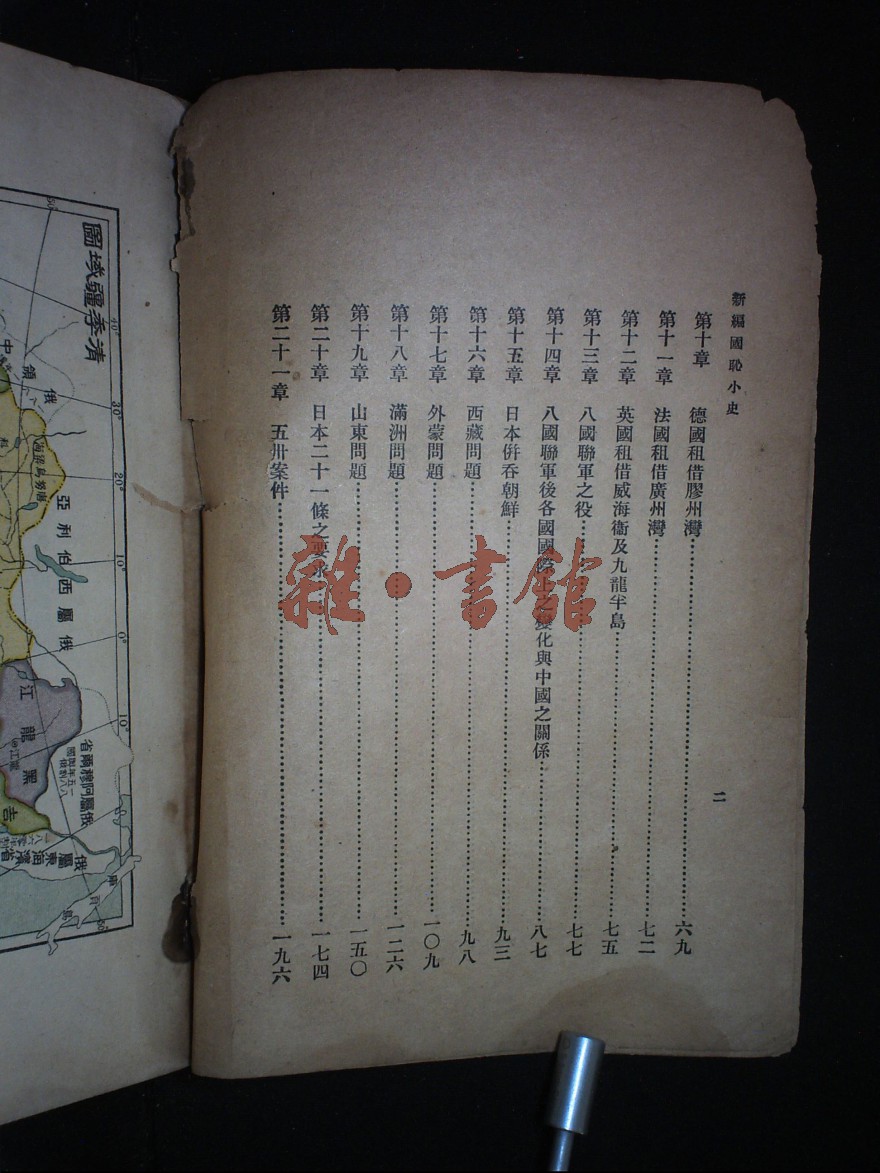 新編國恥小史
二
第十章 德國租借膠州灣……六九
第十一章 法國租借廣州灣……七二
第十二章 英國租借威海衞及九龍半島……七五
第十三章 八國聯軍之役……七七
第十四章 八國聯軍後各國國際上之變化與中國之關係……八七
第十五章 日本併吞朝鮮……九三
第十六章 西藏問題……九八
第十七章 外蒙問題……一〇九
第十八章 滿洲問題……一二六
第十九章 山東問題……一五〇
第二十章 日本二十一條之要求……一七四
第二十一章 五卅案件……一九六
雜·書館
圖域疆季清
50°
40°
30°
20°
10°
0°
10°
中
領俄
亞利伯西屬俄
江龍黑
吉
省爾穆阿屬俄
省濱海東屬俄